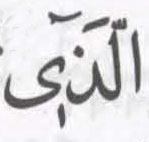 الَّذِىٓ